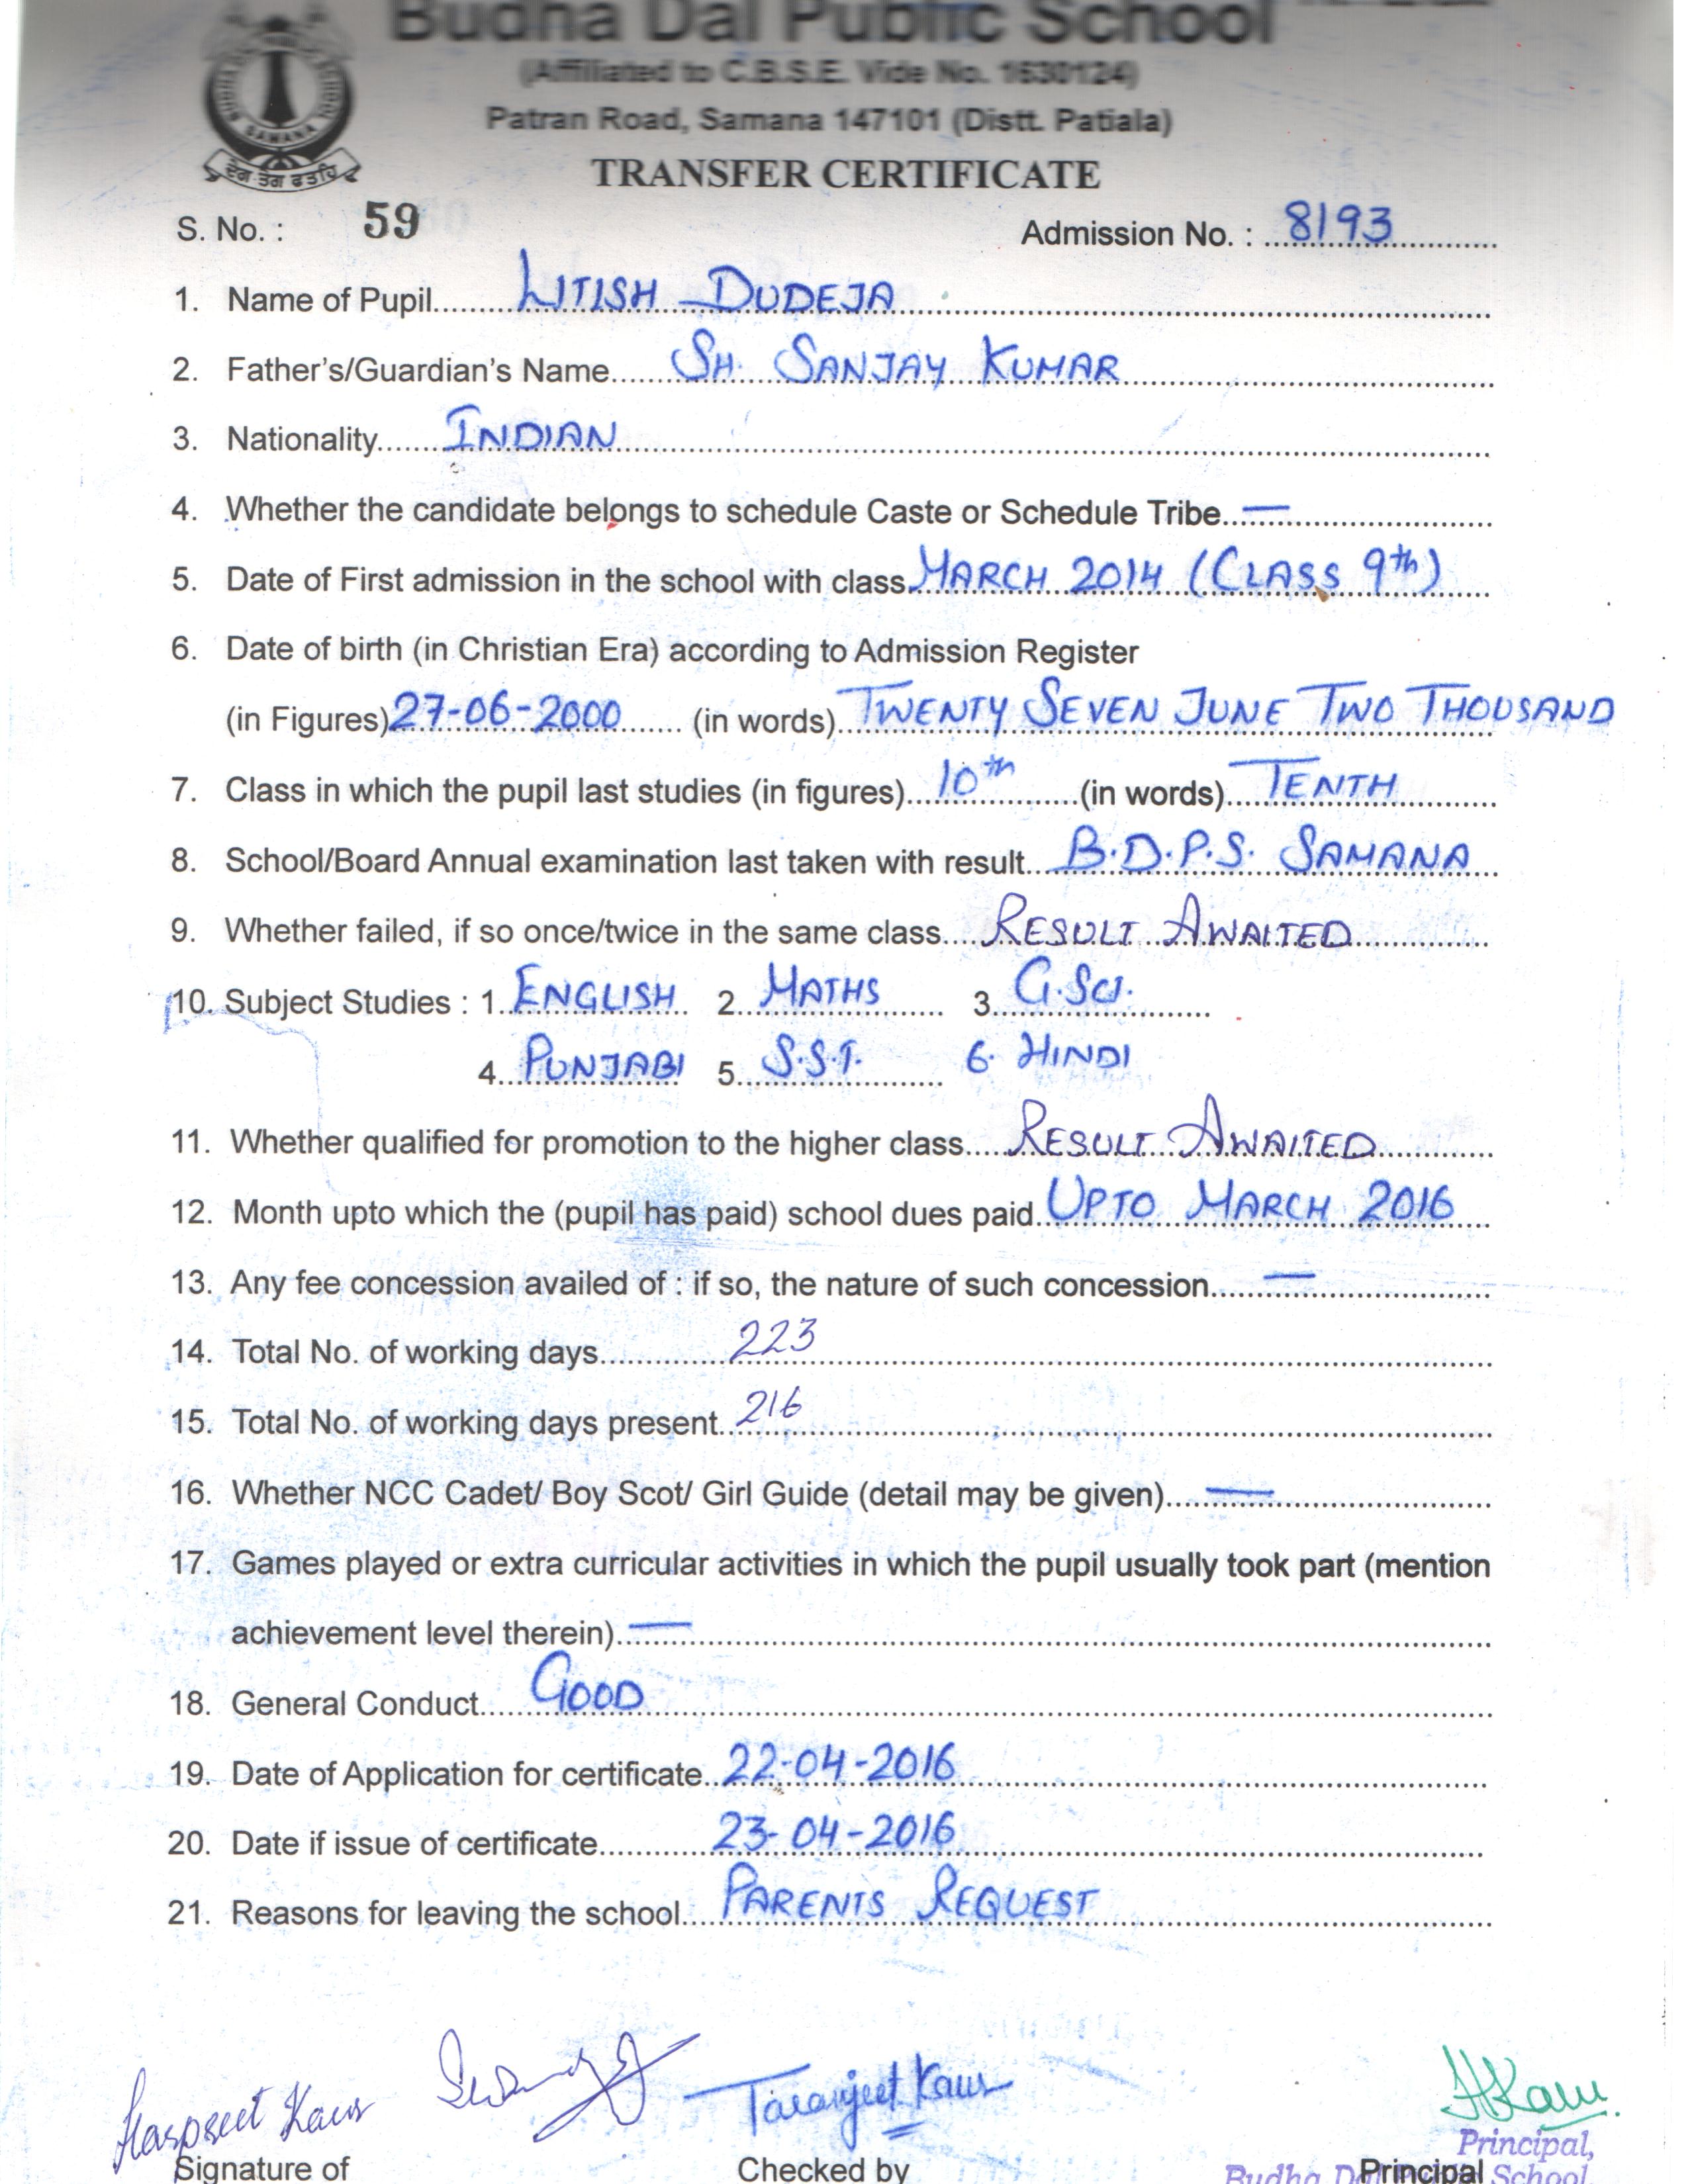 Budha Dal Public School
(Affiliated to C.B.S.E. Vide No. 1630124)
Patran Road, Samana 147101 (Distt. Patiala)
SAMANA
ਦੇਗ ਤੇਗ ਫਤਹਿ
TRANSFER CERTIFICATE
S. No. : 59 Admission No. : 8193
1. Name of Pupil LITISH DUDEJA
2. Father's/Guardian's Name SH. SANJAY KUMAR
3. Nationality INDIAN
4. Whether the candidate belongs to schedule Caste or Schedule Tribe —
5. Date of First admission in the school with class MARCH 2014 (CLASS 9th)
6. Date of birth (in Christian Era) according to Admission Register
(in Figures) 27-06-2000 (in words) TWENTY SEVEN JUNE TWO THOUSAND
7. Class in which the pupil last studies (in figures) 10th (in words) TENTH
8. School/Board Annual examination last taken with result B.D.P.S. SAMANA
9. Whether failed, if so once/twice in the same class RESULT AWAITED
10. Subject Studies : 1. ENGLISH 2. MATHS 3. G.SCI.
4. PUNJABI 5. S.S.T. 6. HINDI
11. Whether qualified for promotion to the higher class RESULT AWAITED
12. Month upto which the (pupil has paid) school dues paid UPTO MARCH 2016
13. Any fee concession availed of : if so, the nature of such concession —
14. Total No. of working days 223
15. Total No. of working days present 216
16. Whether NCC Cadet/ Boy Scot/ Girl Guide (detail may be given) —
17. Games played or extra curricular activities in which the pupil usually took part (mention
achievement level therein) —
18. General Conduct GOOD
19. Date of Application for certificate 22-04-2016
20. Date if issue of certificate 23-04-2016
21. Reasons for leaving the school PARENTS REQUEST
Harpreet Kaur Taranjeet Kaur HKaur
Principal,
Signature of Checked by Principal
Budha Dal School,